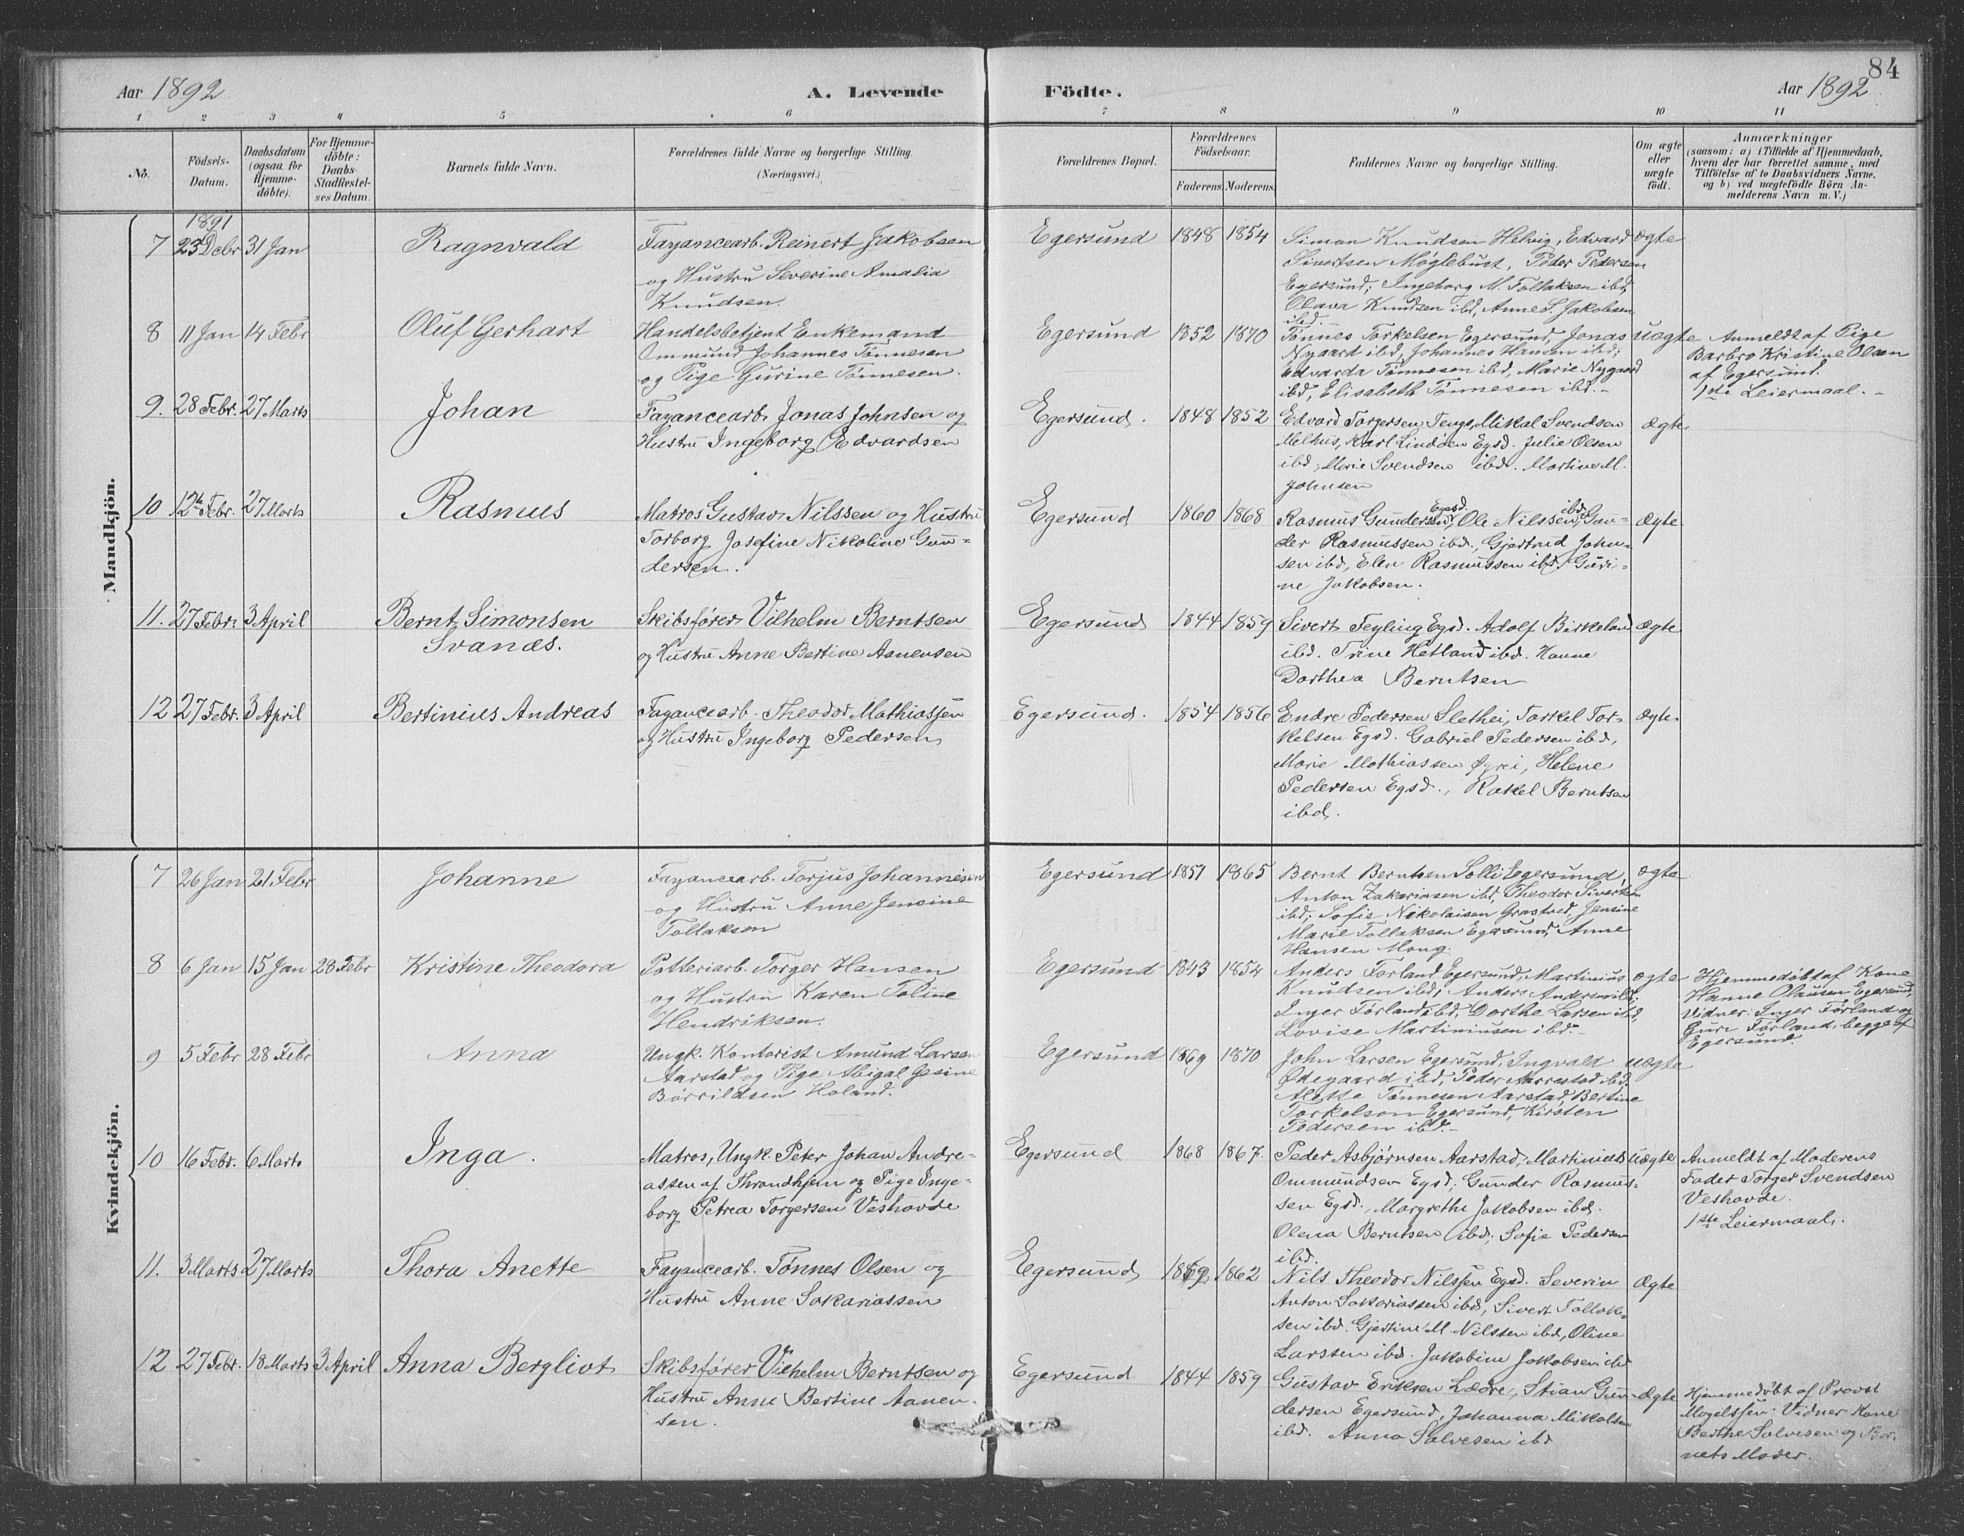 84
Aar 1892
A. Levende
Födte.
Aar 1892
1 2 3 4 5 6 7 8 9 10 11
No.
Födsels-
Datum.
Daabsdatum
(ogsaa for
Hjemme-
döbte).
For Hjemme-
döbte:
Daabs-
Stadfæstel-
ses Datum.
Barnets fulde Navn.
Forældrenes fulde Navne og borgerlige Stilling.
(Næringsvei.)
Forældrenes Bopæl.
Forældrenes
Födselsaar.
Faderens. Moderens.
Faddernes Navne og borgerlige Stilling.
Om ægte
eller
uægte
födt.
Anmærkninger
(saasom: a) i Tilfælde af Hjemmedaab,
hvem der har forrettet samme, med
Tilföielse af to Daabsvidners Navne,
og b) ved uægtefödte Börn An-
melderens Navn m. V.)
Mandkjön.
1891
7 23 Decbr 31 Jan
Ragnvald
Fayancearb. Reinert Jakobsen
og Hustru Severine Amalia
Knudsen.
Egersund 1848 1854
Simon Knudsen Helvig, Edvard
Sivertsen Møglebust, Peder Pedersen
Egersund, Ingeborg M. Tollaksen ibd,
Olava Knudsen ibd, Anne S. Jakobsen
ibd.
ægte
8 11 Jan 14 Febr
Oluf Gerhart
Handelsbetjent Enkemand
Ommund Johannes Tønnesen
og Pige Gurine Tønnesen.
Egersund 1852 1870
Tønnes Torkelsen Egersund, Jonas
Nygaard ibd, Johannes Hansen ibd;
Edvarda Tønnesen ibd, Marie Nygaard
ibd, Elisabeth Tønnesen ibd.
uægte
Anmeldt af Pige
Barbro Kristine Olsen
af Egersund.
1ste Leiermaal.
9. 28 Febr. 27 Marts
Johan
Fayancearb. Jonas Johnsen og
Hustru Ingeborg Edvardsen
Egersund. 1848 1852
Edvard Torgersen Tengs, Mikal Svendsen
Melhus, Karl Lindøen Egsd. Julie Olsen
ibd, Marie Svendsen ibd. Martine M.
Johnsen
ægte.
10 12te Febr. 27 Marts
Rasmus
Matros Gustav Nilssen og Hustru
Torborg Josefine Nikoline Gun-
dersen.
Egersund 1860 1868
Rasmus Gundersen Egsd., Ole Nilssen ibd, Gun-
der Rasmussen ibd., Gjertrud John-
sen ibd, Elen Rasmussen ibd, Guri-
ne Jakobsen.
ægte
11. 27 Febr. 3 April
Bernt Simonsen
Svanes.
Skibsfører Vilhelm Berntsen
og Hustru Anne Bertine Aanensen
Egersund 1844 1859
Sivert Feyling Egsd. Adolf Birkeland
ibd. Trine Hetland ibd. Hanne
Dorthea Berntsen
ægte
12 27 Febr. 3 April
Bertinius Andreas
Fayancearb. Theodor Mathiassen
og Hustru Ingeborg Pedersen
Egersund. 1854 1856
Endre Pedersen Slethei, Torkel Tor-
kelsen Egsd. Gabriel Pedersen ibd,
Marie Mathiassen Øyrei, Helene
Pedersen Egsd., Rakel Berntsen
ibd.
ægte.
Kvindekjön.
7 26 Jan 21 Febr
Johanne
Fayancearb. Torjus Johannesen
og Hustru Anne Jensine
Tollaksen
Egersund 1851 1865
Bernt Berntsen Solli, Egersund,
Anton Zakariasen ibd, Theodor Sivertsen
ibd; Sofie Nikolaisen Grøstad, Jensine
Marie Tollaksen Egersund, Anne
Hansen Mong.
ægte
8 6 Jan 15 Jan 28 Febr
Kristine Theodora
Potteriarb. Torger Hansen
og Hustru Karen Toline
Hendriksen.
Egersund 1843 1854
Anders Forland Egersund, Martinius
Knudsen ibd; Anders Andersen ibd;
Inger Forland ibd, Dorthe Larsen ibd,
Lovise Martiniusen ibd.
ægte
Hjemmedøbt af Kone
Hanne Olausen Egersund,
Vidner: Inger Forland og
Guri Forland, begge af
Egersund
9 5 Febr 28 Febr
Anna
Ungk. Kontorist Amund Larsen
Aarstad og Pige Abigal Gesine
Børrildsen Holand.
Egersund 1869 1870
John Larsen Egersund, Ingvald
Ødegaard ibd, Peder Aarrestad ibd.
Alette Tønnesen Aarstad, Bertine
Torkelsen Egersund, Kirsten
Pedersen ibd.
uægte
10 16 Febr. 6 Marts
Inga.
Matros, Ungk. Peter Johan Andre-
assen af Throndhjem og Pige Inge-
borg Petrea Torgersen Veshovde
Egersund 1868 1867.
Peder Asbjørnsen Aarstad, Martinius
Ommundsen Egsd; Gunder Rasmus-
sen Egsd., Margrethe Jakobsen ibd.
Olena Berntsen ibd; Sofie Pedersen
ibd.
uægte
Anmeldt af Moderens
Fader Torger Svendsen
Veshovde.
1ste Leiermaal.
11. 3 Marts 27 Marts
Thora Anette
Fayancearb. Tønnes Olsen og
Hustru Anne Sakariassen
Egersund 1862
Nils Theodor Nilssen Egsd. Severin
Anton Sakariassen ibd, Sivert Tollak-
sen ibd. Gjertine M. Nilssen ibd, Oline
Larssen ibd. Jakobine Jakobsen ibd
ægte
12 27 Febr. 18 Marts 3 April
Anna Bergliot
Skibsfører Vilhelm Berntsen og
Hustru Anne Bertine Aanen-
sen.
Egersund 1844 1859
Gustav Eriksen Lædre, Stian Gun-
dersen Egersund, Johanna Mikalsen
ibd. Anna Salvesen ibd
ægte
Hjemmedøbt af Provst
Magelssen. Vidner Kone
Berthe Salvesen og Bar-
nets Moder.